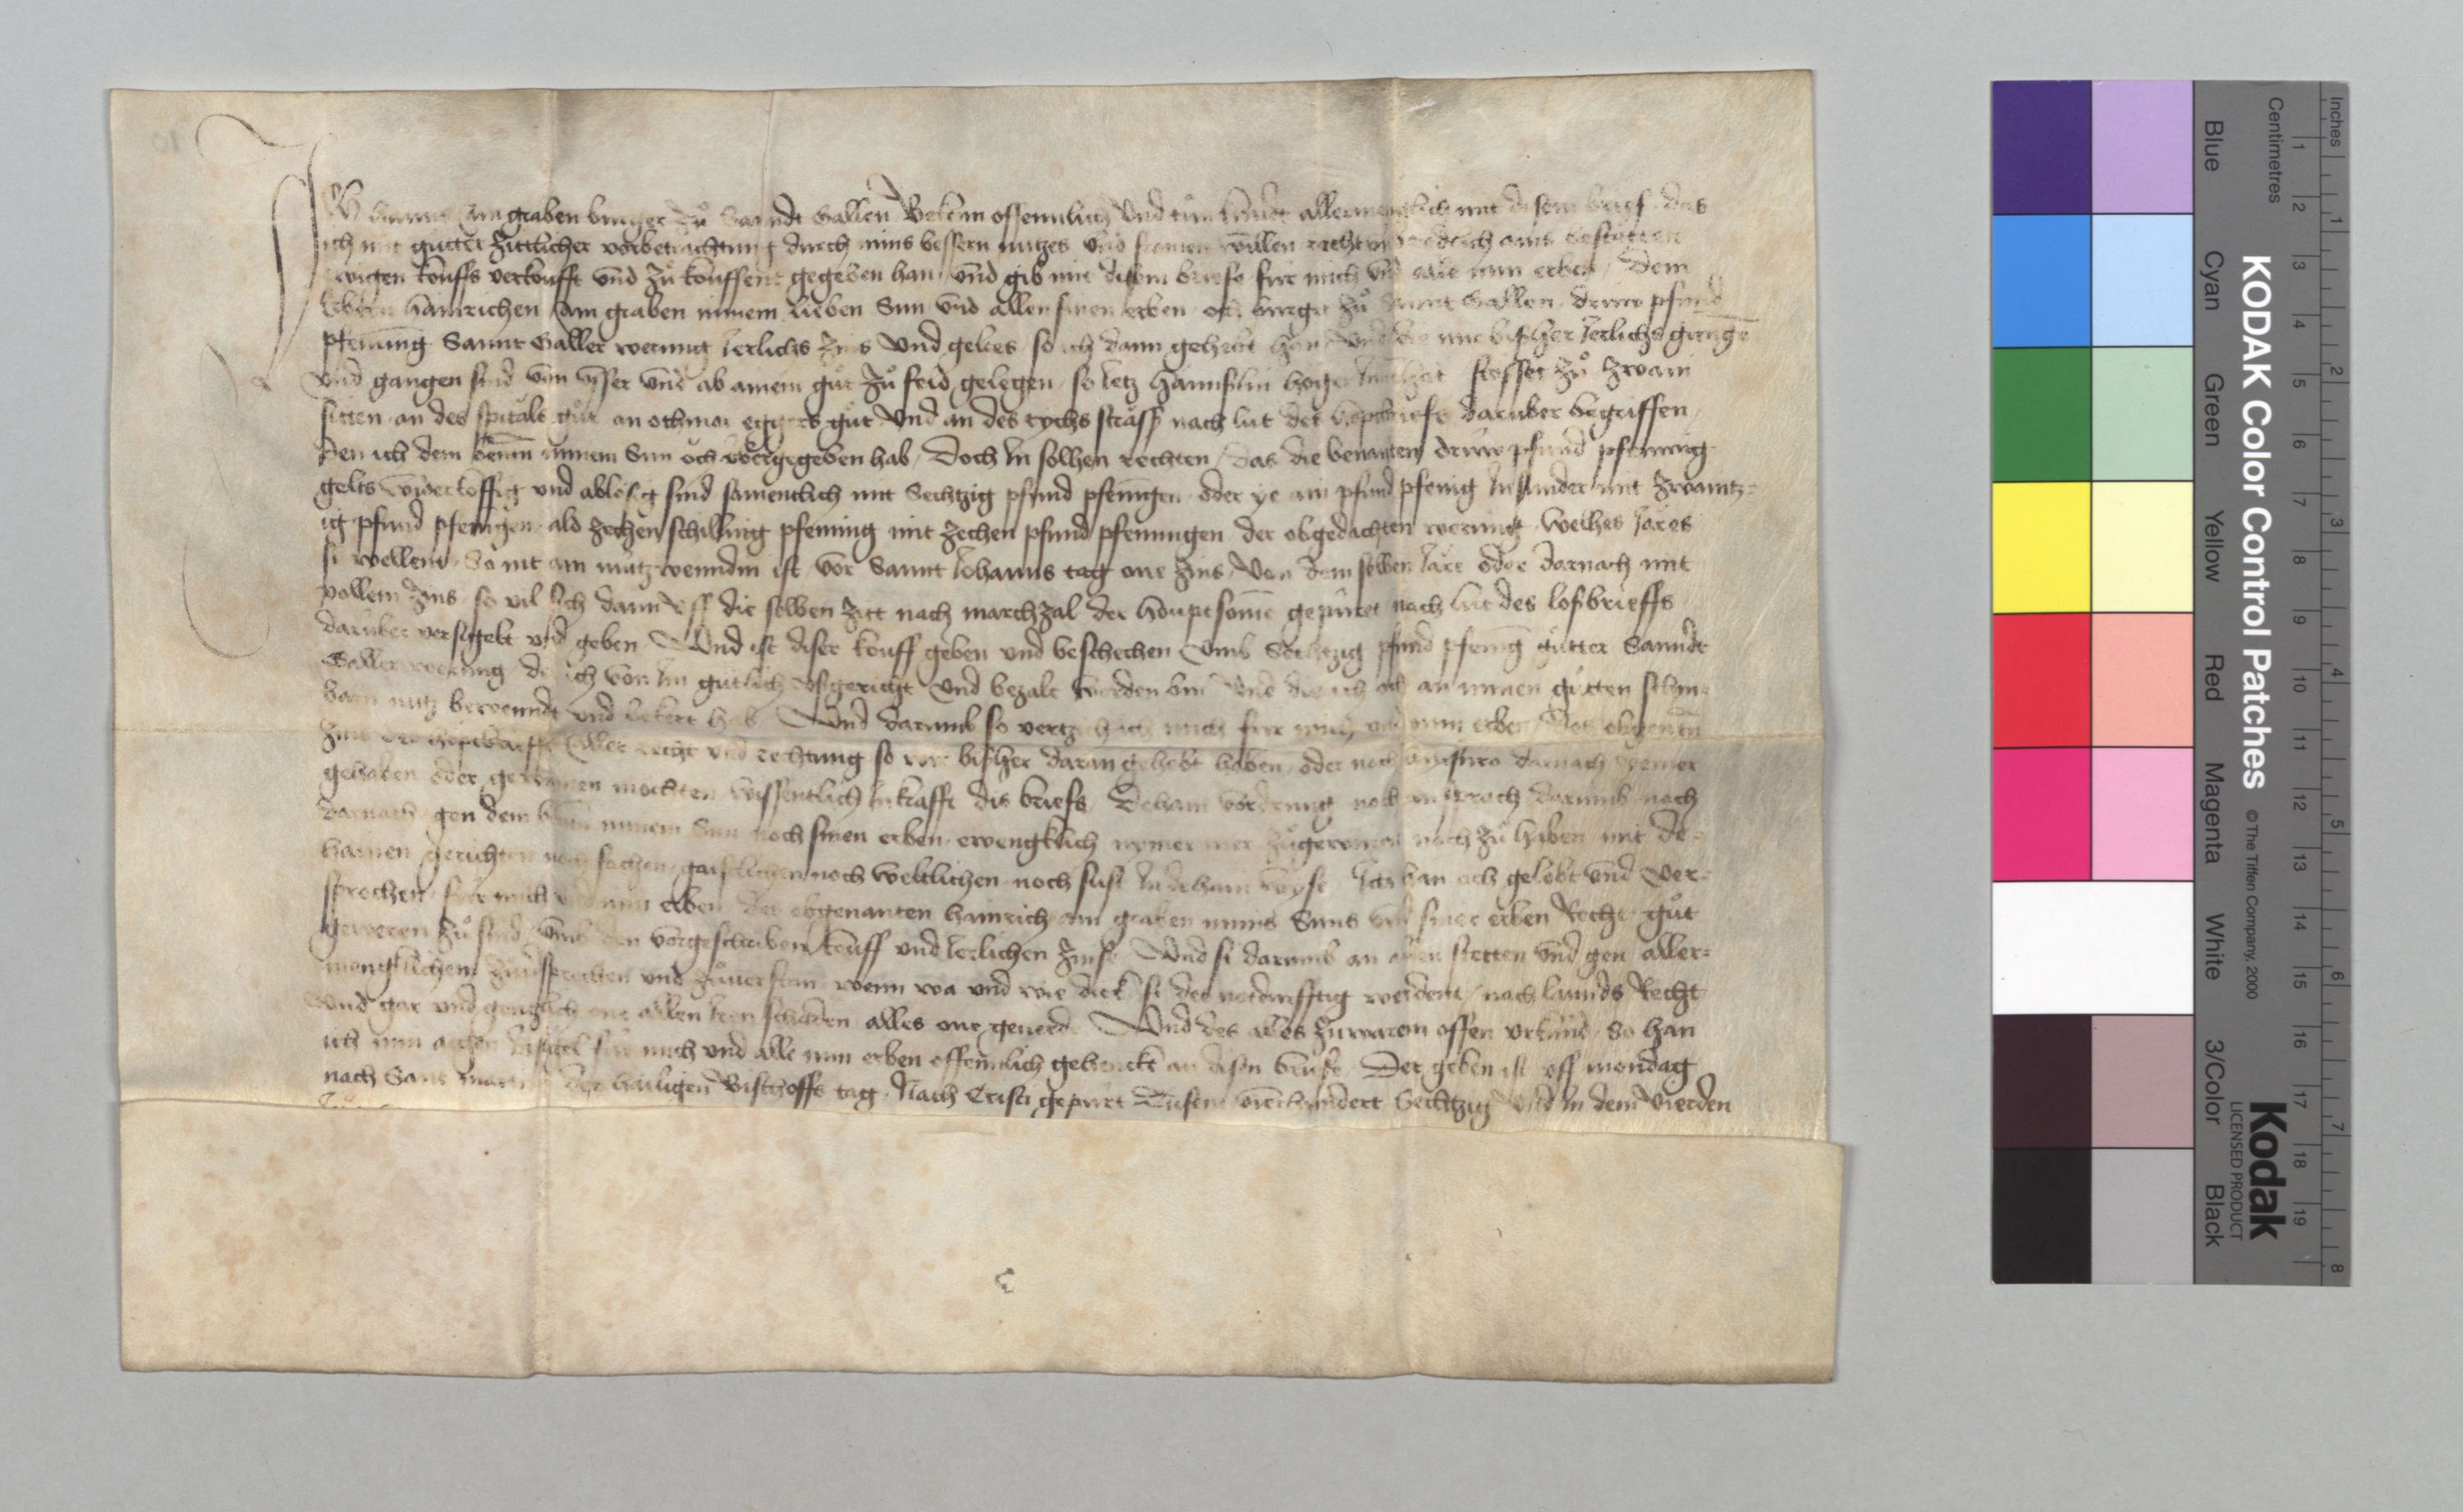 Ich am graben burger zů Sanndt Gallen Bekenn offennlich Und tůn kundt allermengklich mit disem brief das
ich mit gůtter zittlicher vorbetrachtung durch mins bessern nutzes und fromen willen recht und redlich ains bestätten
ewigen kouffs verkoufft und zů kouffend gegeben han und gib mit disem briefe für mich und alle min erben Dem
Hainrichen Am graben minem lieben Sun und allen sinen erben och burger zů Sannt Gallen drüw pfund
pfenning Sannt Galler werung Jerlichs Zins Und geltes so ich dann gehebt han Und die mir bisher Jerlichs
Und gangen sind von usser und ab ainem gůt Zů feld gelegen so Jetz stosset zů zwain
sitten an des spitals gůt an othmar eggers gůt Und an des rychs stråss nach lut des darüber begriffen
Den ich dem minem Sun och übergegeben hab Doch In solhen rechten das die benanten drüw pfund pfenning
gelts und ablosig sind samentlich mit Sechtzig pfund pfenigen oder ye ain pfund pfenig Insunder mit zwaintz-
ig pfund pfenigen ald zechen schilling pfenning mit zechen pfund pfenningen der obgedachten werung welhes Jares
si wellent vor Sannt Johanns tag one zins Von dem selben Jare oder darnach mit
vollem Zins so vil sich dann uff die selben zit nach marchzal der houptsome gepüret nach lut des losbrieffs
darüber versigelt und geben Und ist diser kouff geben und beschechen Umb Sechtzig pfund pfenig gůtter Sanndt
Galler werung der ich von Im gütlich usgericht Und bezalt worden bin Und die ich och an minen gůtten schin-
barn nutz bewenndt und bekert hab Und darumb so vertzich ich mich für mich und min erben Des obgenn
Zins Aller recht und rechtung so wir bisher daran gehebt haben oder noch darnach yemer
gehaben oder gewinnen mochten wissentlich In krafft dis briefs Dehain vordrung noch ansprach darumb noch
darnach gen dem minem Sun noch sinen erben ewengklich nymer mer zůgewinnen noch zů haben mit de-
hainen gerichten noch sachen gaistlichen noch weltlichen noch sust In dehain wyse Ich han och gelobt und Ver-
sprochen für mich und min erben des obgenanten hainrich am graben mins Suns und siner erben Recht gůt
geweren zů sind Umb den vorgeschriben kouff und Jerlichen Zinse Und si darumb an allen stetten Und gen aller-
mengklichem zůversprechen und zůverstan wenn wa und wie dick si des notdurfftig werdent nach lannds Recht
Und gar und gentzlich one allen Iren schaden alles one geverd Und des alles zu warem offen urkünd So han
ich min aigen Insigel für mich und alle min erben offennlich gehenckt an disen brief Der geben ist uff mendag
nach Sant Martis des hailigen Bischoffs tag Nach Cristi gepürt Tusent vierhundert Sechtzig Und In dem Vierden
10
KODAK Color Control Patches © The Tiffen Company, 2000
Kodak
LICENSED PRODUCT
Centimetres
Inches
Blue Cyan Green Yellow Red Magenta White 3/Color Black
1 2 3 4 5 6 7 8 9 10 11 12 13 14 15 16 17 18 19
1 2 3 4 5 6 7 8